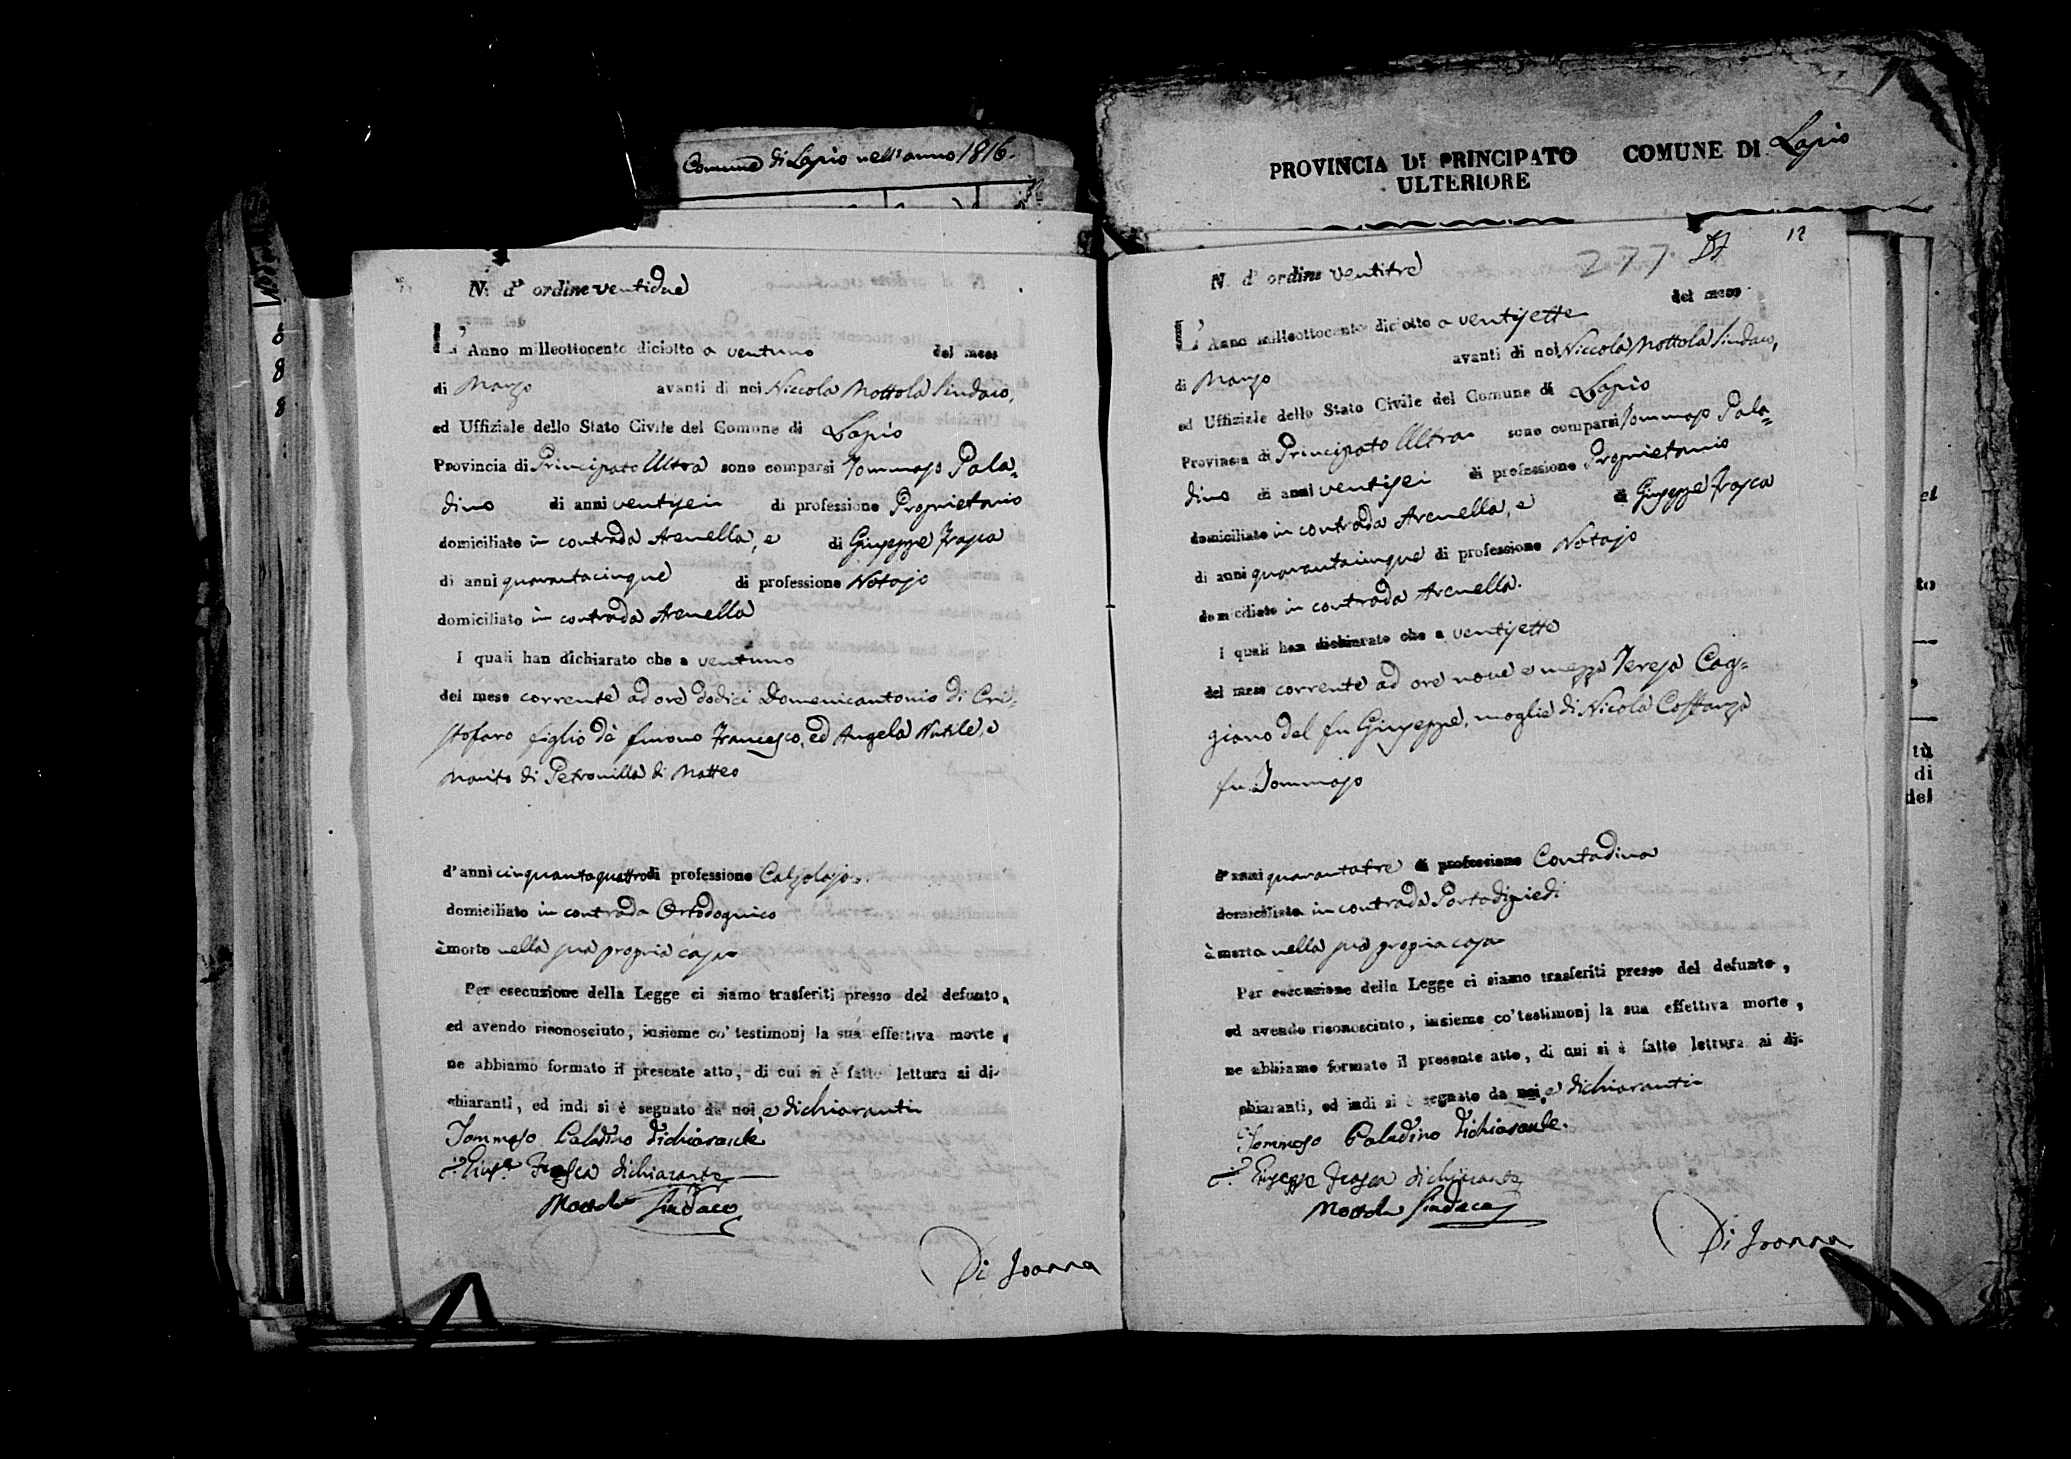 Comune di Lapio nell'anno 1816.
PROVINCIA DI PRINCIPATO ULTERIORE COMUNE DI Lapio
6
8
8
N. d' ordine ventidue
L' Anno milleottocento diciotto a ventuno del mese
di Marzo avanti di noi Niccola Mottola Sindaco,
ed Uffiziale dello Stato Civile del Comune di Lapio
Provincia di Principato Ultra sono comparsi Tommaso Pala=
dino di anni ventisei di professione Proprietario
domiciliato in contrada Arenella, e di Giuseppe Frasca
di anni quarantacinque di professione Notajo
domiciliato in contrada Arenella
I quali han dichiarato che a ventuno
del mese corrente ad ore dodici Domenicantonio di Cri=
stofaro figlio de' furono Francesco, ed Angela Nutile, e
marito di Petronilla di Matteo
d'anni cinquantaquattro di professione Calzolajo
domiciliato in contrada Ortodoguico
è morto nella sua propria casa
Per esecuzione della Legge ci siamo trasferiti presso del defunto,
ed avendo riconosciuto, insieme co' testimonj la sua effettiva morte,
ne abbiamo formato il presente atto, di cui si è fatto lettura ai di-
chiaranti, ed indi si è segnato da noi, e dichiaranti
Tommaso Paladino dichiarante
Frasca dichiarante
Mottola Sindaco
Di Joanna
277
12
N. d' ordine ventitre
L' Anno milleottocento diciotto a ventisette del mese
di Marzo avanti di noi Niccola Mottola Sindaco,
ed Uffiziale dello Stato Civile del Comune di Lapio
Provincia di Principato Ultra sono comparsi Tommaso Pala=
dino di anni ventisei di professione Proprietario
domiciliato in contrada Arenella, e di Giuseppe Frasca
di anni quarantacinque di professione Notajo
domiciliato in contrada Arenella.
I quali han dichiarato che a ventisette
del mese corrente ad ore nove e mezza Teresa Cag=
giano del fu Giuseppe, moglie di Nicola Costanza
fu Tommaso
d'anni quarantatre di professione Contadina
domiciliata in contrada Portadipiedi
è morta nella sua propria casa
Per esecuzione della Legge ci siamo trasferiti presso del defunto,
ed avendo riconosciuto, insieme co' testimonj la sua effettiva morte,
ne abbiamo formato il presente atto, di cui si è fatto lettura ai di-
chiaranti, ed indi si è segnato da noi, e dichiaranti
Tommaso Paladino dichiarante.
Giuseppe Frasca dichiarante
Mottola Sindaco
Di Joanna
el
to
tù
di
del